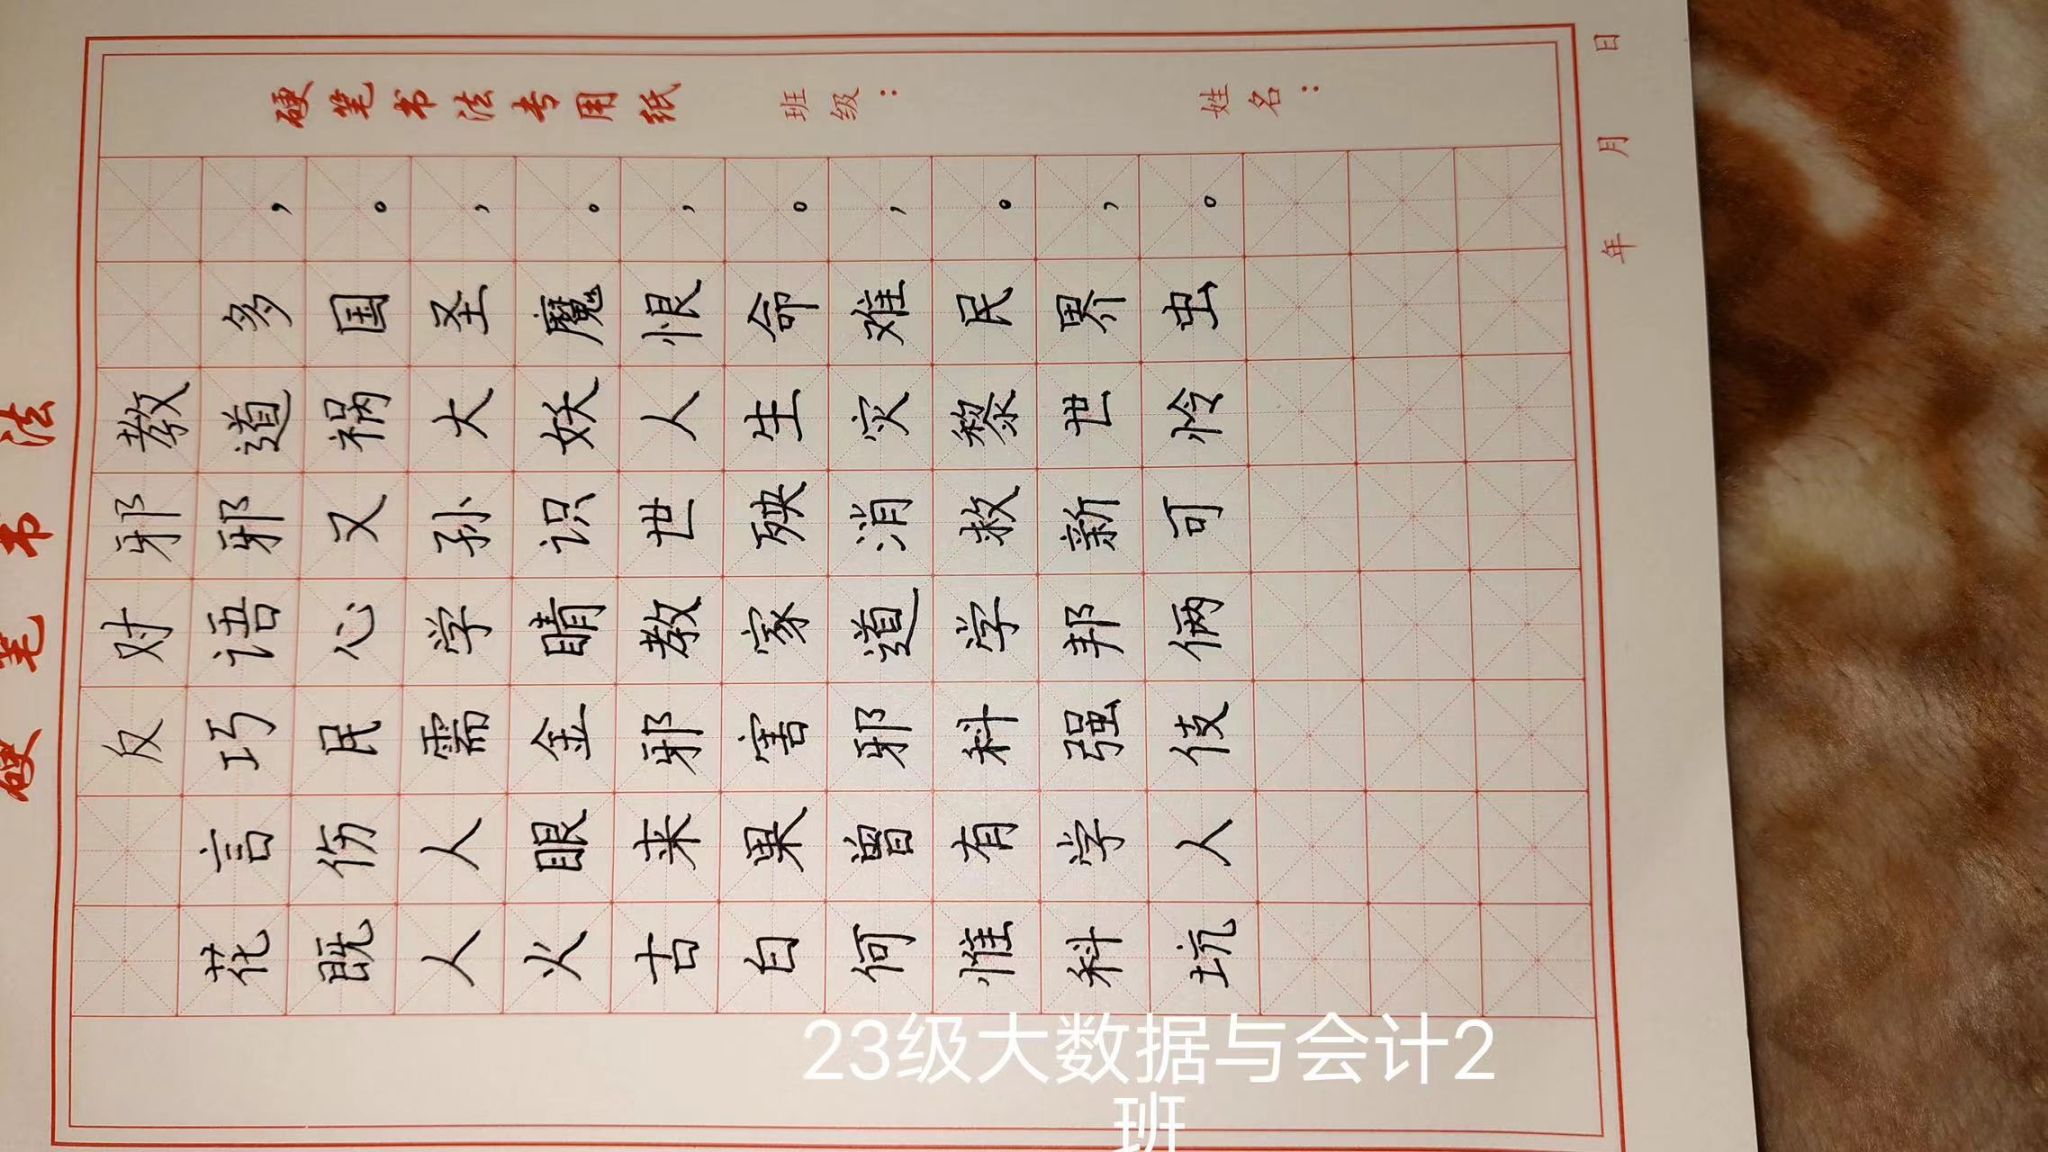 硬笔书法
反对邪教
花言巧语邪道多，
既伤民心又祸国。
人人需学孙大圣，
火眼金睛识妖魔。
古来邪教世人恨，
白果害家殃生命。
何曾邪道消灾难，
惟有科学救黎民。
科学强邦新世界，
坑人伎俩可怜虫。
硬笔书法专用纸 班级： 姓名：
年 月 日
23级大数据与会计2
班